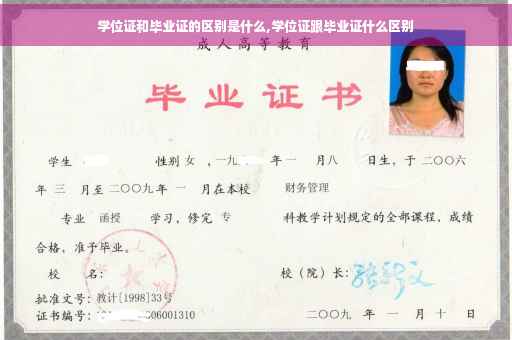 学位证和毕业证的区别是什么,学位证跟毕业证什么区别
成人高等教育
毕业证书
学生 性别 女 ,一九 年 一 月八 日生，于 二〇〇六
年 三 月至 二〇〇九 年 一 月在本校 财务管理
专业 函授 学习，修完 专 科教学计划规定的全部课程，成绩
合格，准予毕业。
校 名： 校（院）长：
批准文号：教计[1998]33号
证书编号： 06001310 二〇〇九 年 一 月 十 日